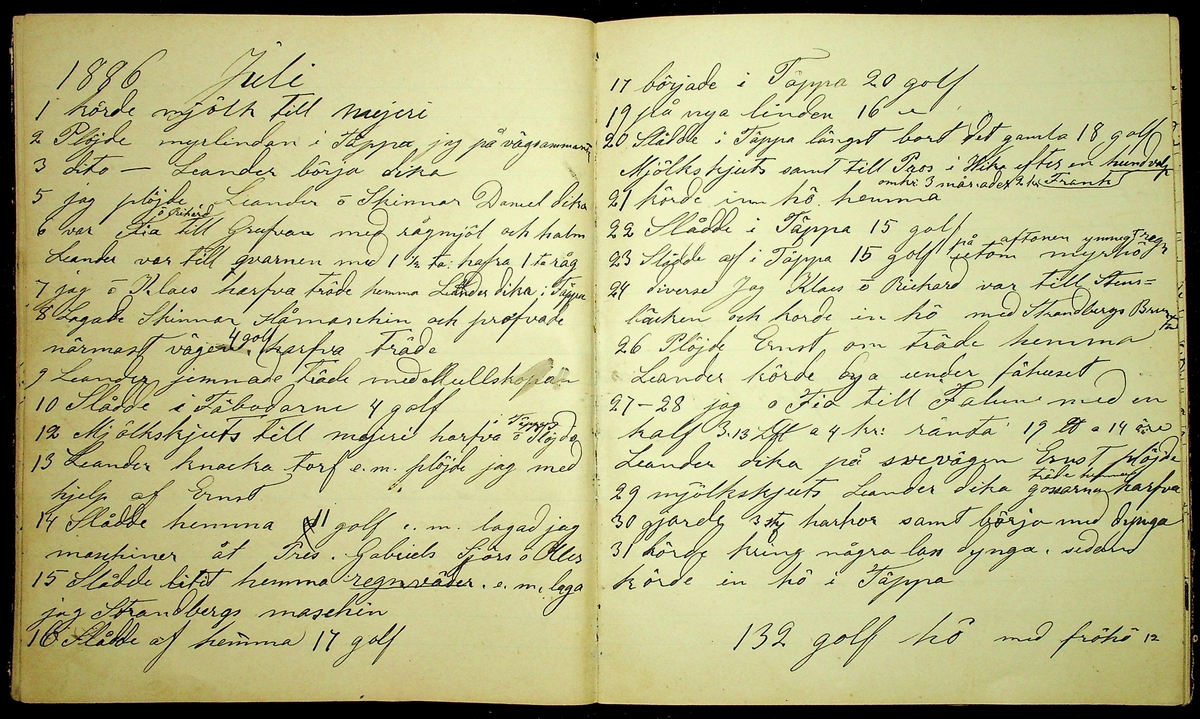 1886 Juli
1 körde mjölk till mejeri
2 Plöjde myrlindan i Täppa, jag på vägsammant
3 Dito — Leander börja dika
5 jag plöjde Leander o Skinnar Daniel dika
6 var Fia o Rikard till Grufvan med rågmjöl och halm
Leander var till qvarnen med 1 1/2 ta: hafra 1 ta råg
7 jag o Klaes harfva träde hemma Leander dika i Täppa
8 Lagade Skinnar Slåmaschin och profvade
närmast vägen 4 golf harfva träde
9 Leander jemnade träde med Mullskopan
10 Slådde i Fäbodarne 4 golf
12 Mjölkskjuts till mejeri harfva i Täppa o Plöjde
13 Leander knacka torf e.m. plöjde jag med
hjelp af Ernst
14 Slådde hemma 11 golf e.m. lagad jag
maschiner åt Pres. Gabriels Sjörs o Olles
15 Slådde litit hemma regnväder. e.m. laga
jag Strandbergs maschin
16 Slådde af hemma 17 golf
17 började i Täppa 20 golf
19 slå nya linden 16 "
20 Slådde i Täppa längst bort det gamla 18 golf
Mjölkskjuts samt till Paos i Vika efter en hundvalp
omkr: 3 månader 2 kr Frank
21 körde inn hö hemma
22 Slådde i Täppa 15 golf
23 Slådde af i Täppa 15 golf på aftonen ymnigt regn utom myrhö
24 diverse Jag Klaes o Richard var till Stens=
bäcken och körde in hö med Strandbergs Brunta
26 Plöjde Ernst om träde hemma
Leander körde bya under fähuset
27–28 jag o Fia till Falun med en
kalf 3.13 a 4 kr: ränta 19 a 14 öre
Leander dika på svevägen Ernst plöjde
29 mjölkskjuts Leander dika gossarna träde hemma harfva
30 gjorde 3 st harkor samt börja med dynga
31 körde kring några lass dynga. sedan
körde in hö i Täppa
132 golf hö med fröhö 12